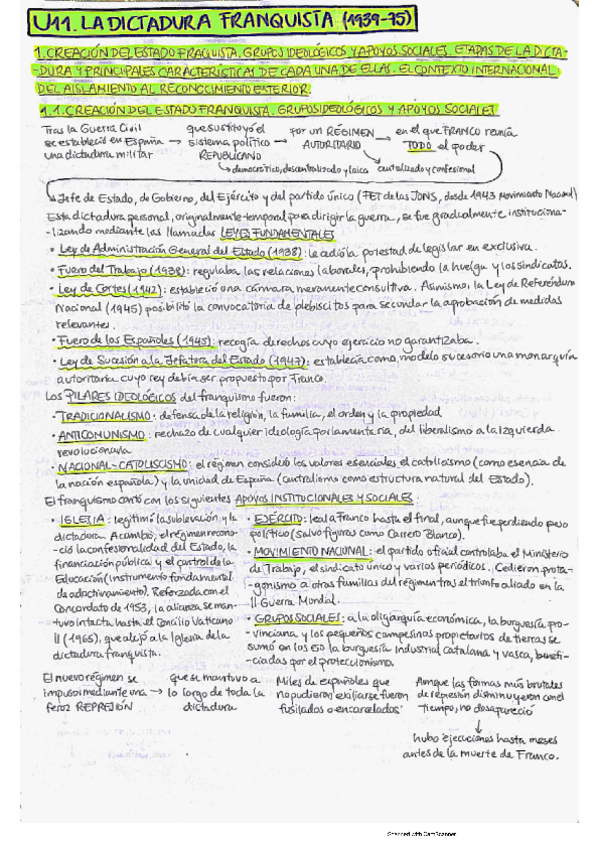 U11. LA DICTADURA FRANQUISTA (1939-75)
1. CREACIÓN DEL ESTADO FRAQUISTA, GRUPOS IDEOLÓGICOS Y APOYOS SOCIALES. ETAPAS DE LA DICTA-
-DURA Y PRINCIPALES CARACTERÍSTICAS DE CADA UNA DE ELLAS. EL CONTEXTO INTERNACIONAL
DEL AISLAMIENTO AL RECONOCIMIENTO EXTERIOR.
1.1. CREACIÓN DEL ESTADO FRANQUISTA. GRUPOS IDEOLÓGICOS Y APOYOS SOCIALES
Tras la Guerra Civil se estableció en España una dictadura militar → que sustituyó el sistema político REPUBLICANO → por un RÉGIMEN AUTORITARIO → en el que FRANCO reunía TODO el poder
↳ democrático, descentralizado y laico
↳ centralizado y confesional
→ Jefe de Estado, de Gobierno, del Ejército y del partido único (FET de las JONS, desde 1943 Movimiento Nacional)
Esta dictadura personal, originalmente temporal para dirigir la guerra, se fue gradualmente instituciona-
-lizando mediante las llamadas LEYES FUNDAMENTALES
• Ley de Administración General del Estado (1938): le adió la potestad de legislar en exclusiva.
• Fuero del Trabajo (1938): regulaba las relaciones laborales, prohibiendo la huelga y los sindicatos.
• Ley de Cortes (1942): estableció una cámara meramente consultiva. Asimismo, la Ley de Referéndum
Nacional (1945) posibilitó la convocatoria de plebiscitos para secundar la aprobación de medidas
relevantes.
• Fuero de los Españoles (1945): recogía derechos cuyo ejercicio no garantizaba.
• Ley de Sucesión a la Jefatura del Estado (1947): establecía como modelo sucesorio una monarquía
autoritaria cuyo rey debía ser propuesto por Franco.
Los PILARES IDEOLÓGICOS del franquismo fueron:
• TRADICIONALISMO: defensa de la religión, la familia, el orden y la propiedad
• ANTICOMUNISMO: rechazo de cualquier ideología parlamentaria, del liberalismo a la izquierda
revolucionaria
• NACIONAL-CATOLISCISMO: el régimen consideró los valores esenciales el catolicismo (como esencia de
la nación española) y la unidad de España (centralismo como estructura natural del Estado).
El franquismo contó con los siguientes APOYOS INSTITUCIONALES Y SOCIALES:
• IGLESIA: legitimó la sublevación y la
dictadura. A cambió, el régimen recono-
-ció la confesionalidad del Estado, la
financiación pública y el control de la
Educación (instrumento fundamental
de adoctrinamiento). Reforzada con el
Concordato de 1953, la alianza se man-
tuvo intacta hasta el Concilio Vaticano
II (1965), que alejó a la Iglesia de la
dictadura franquista.
• EJÉRCITO: leal a Franco hasta el final, aunque fue perdiendo peso
político (salvo figuras como Carrero Blanco).
• MOVIMIENTO NACIONAL: el partido oficial controlaba el Ministerio
de Trabajo, el sindicato único y varios periódicos. Cedieron prota-
-gonismo a otras familias del régimen tras el triunfo aliado en la
II Guerra Mondial.
• GRUPOS SOCIALES: a la oligarquía económica, la burguesía pro-
-vinciana y los pequeños campesinos propietarios de tierras se
sumó en los 60 la burguesía industrial catalana y vasca, benefi-
-ciadas por el proteccionismo.
El nuevo régimen se impuso mediante una feroz REPRESIÓN → que se mantuvo a lo largo de toda la dictadura
Miles de españoles que no pudieron exiliarse fueron fusilados o encarcelados
Aunque las formas más brutales de represión disminuyeron con el tiempo, no desapareció
↓
hubo ejecuciones hasta meses
antes de la muerte de Franco.
Scanned with CamScanner